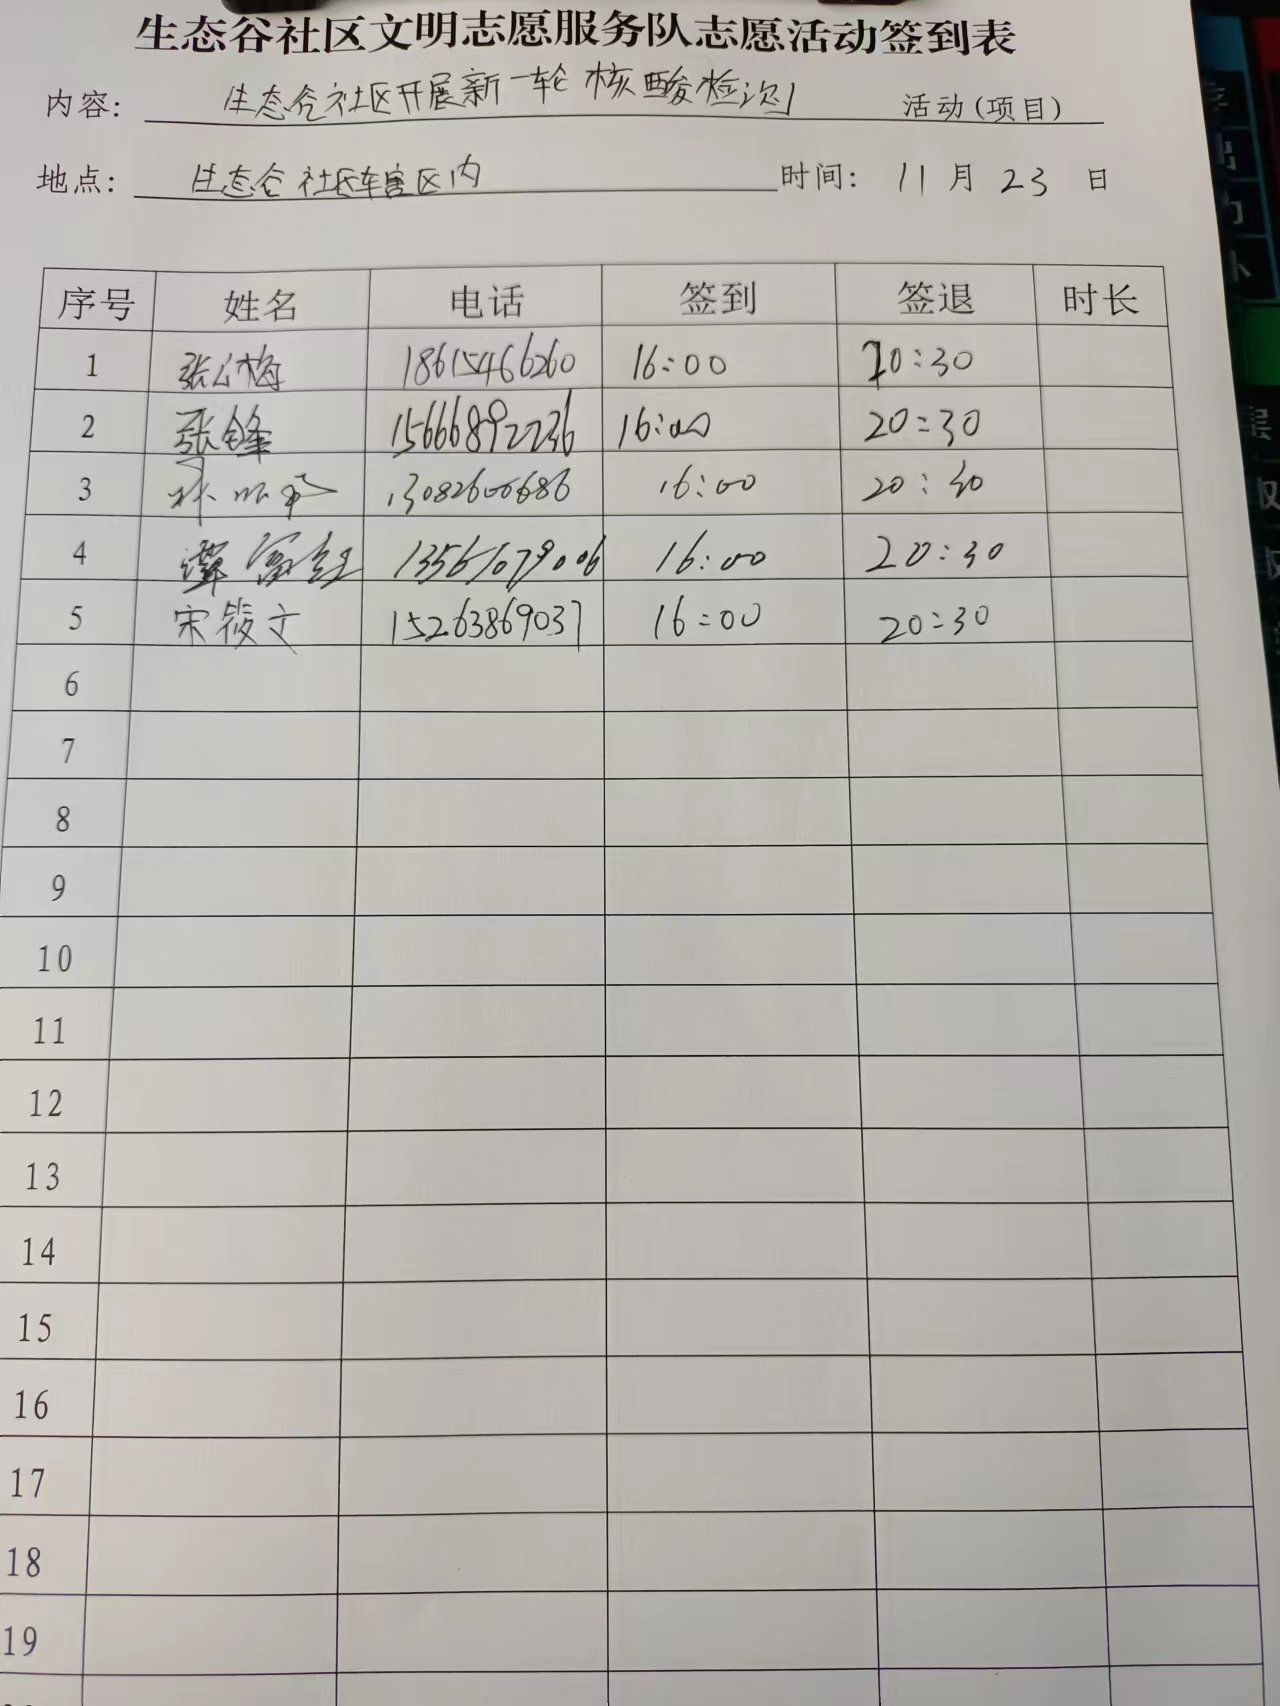 生态谷社区文明志愿服务队志愿活动签到表
内容: 生态谷社区开展新一轮核酸检测 活动(项目)
地点: 生态谷社区辖区内 时间: 11月23日
序号 姓名 电话 签到 签退 时长
1 张公梅 18615466260 16:00 20:30
2 张锋 15666892236 16:00 20:30
3 13082606686 16:00 20:30
4 谭 13561079006 16:00 20:30
5 宋筱文 15263869037 16:00 20:30
6
7
8
9
10
11
12
13
14
15
16
17
18
19